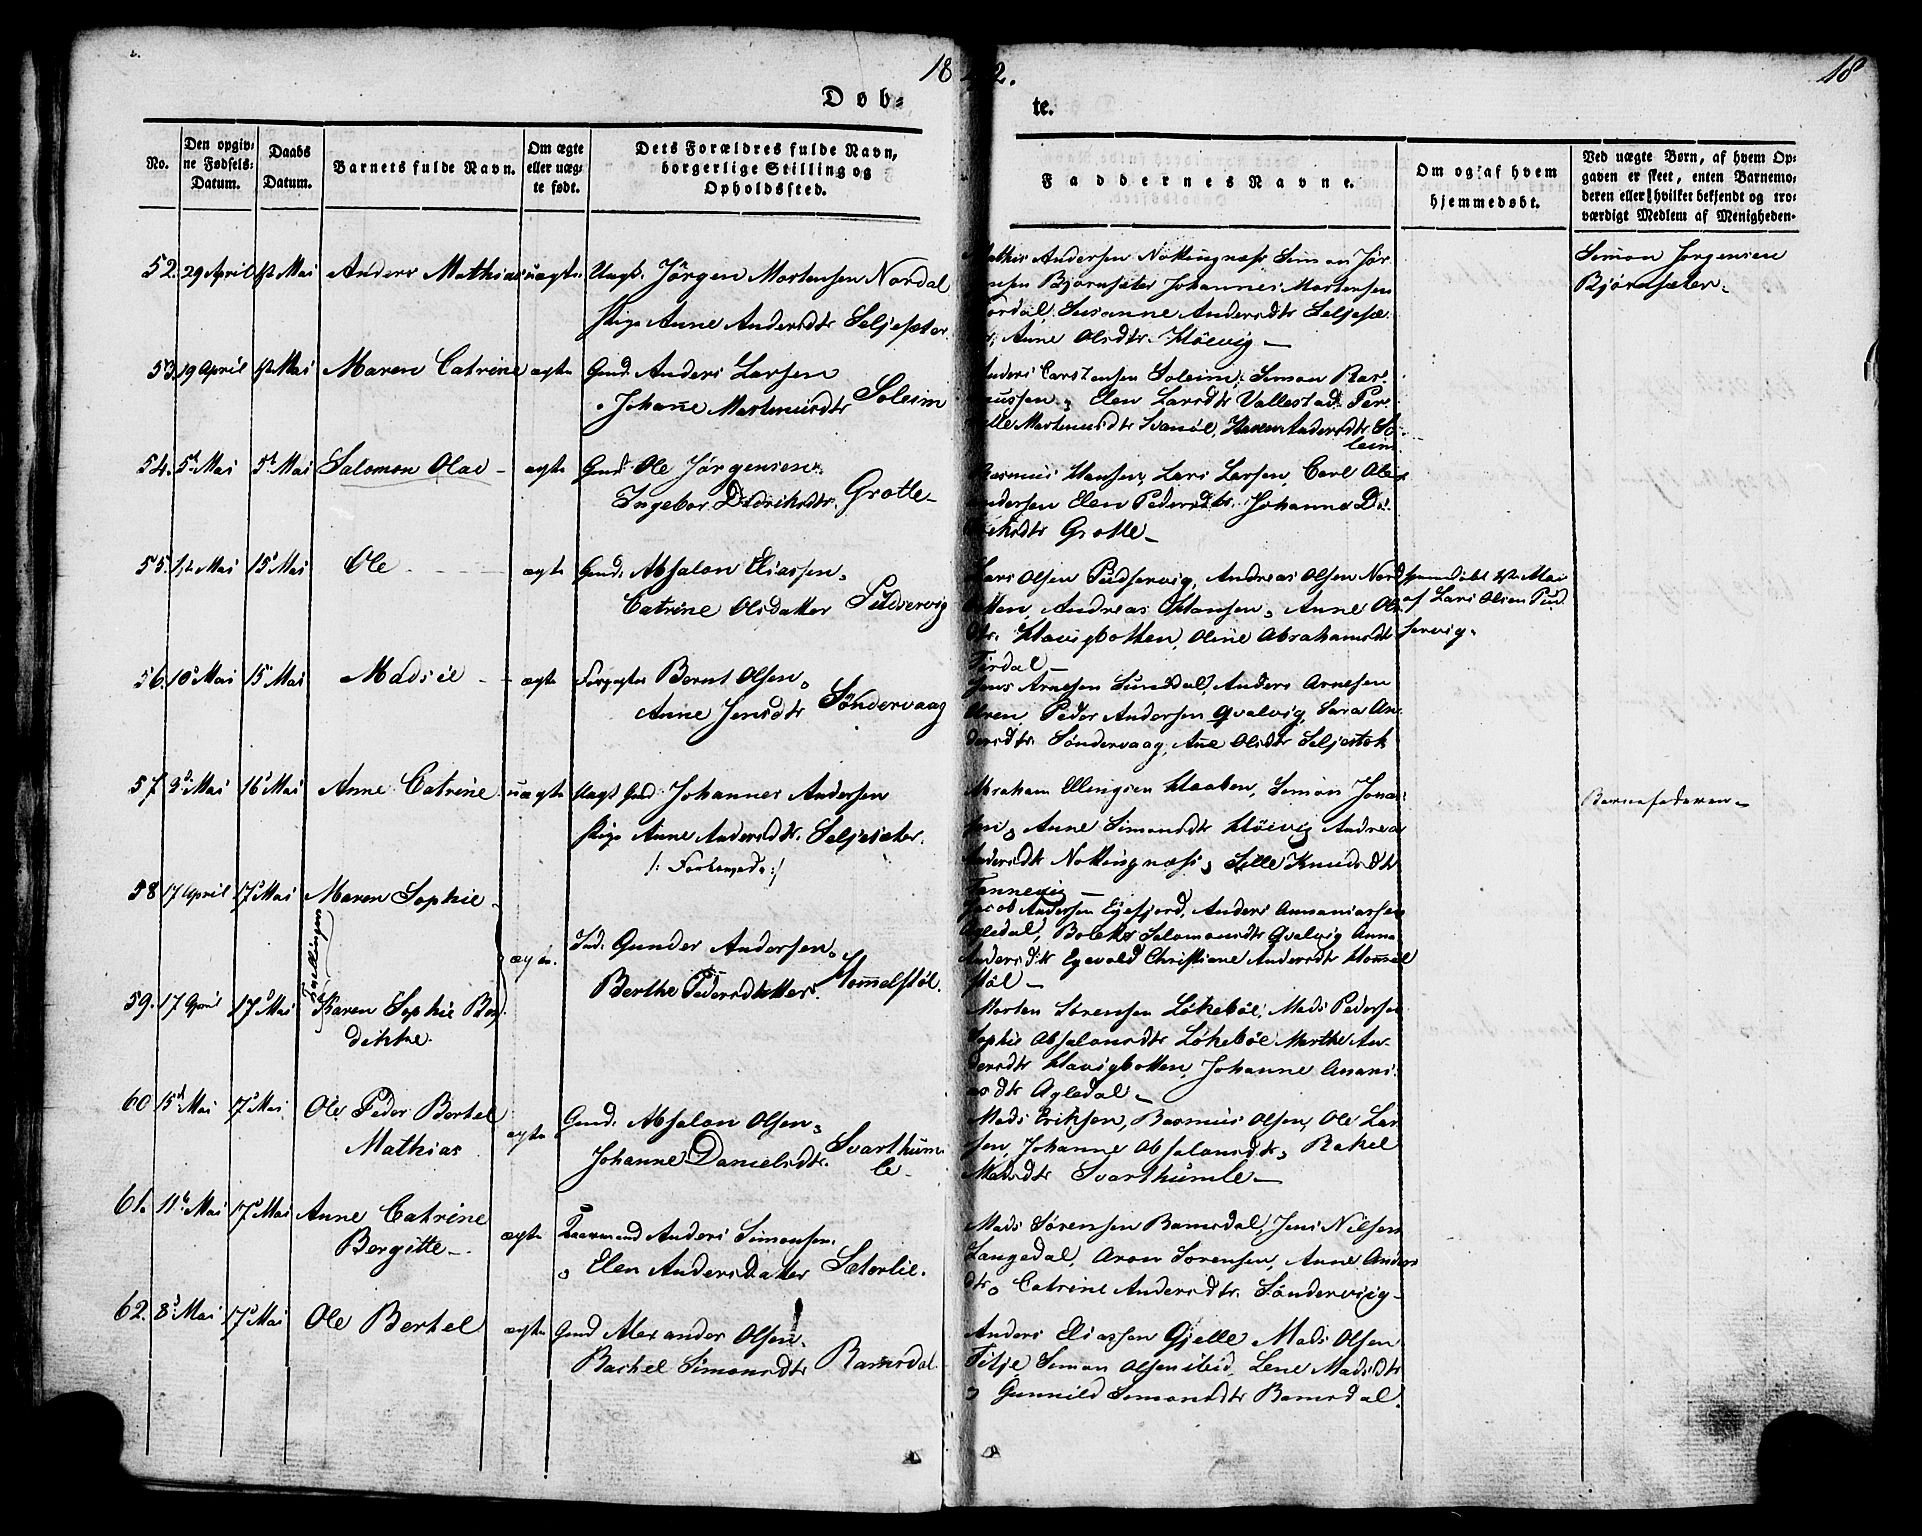 18
2.
18
Døb-
te.
No.
Den opgiv-
ne Fødsels-
Datum.
Daabs
Datum.
Barnets fulde Navn.
Om ægte
eller uæg-
te født.
Dets Forældres fulde Navn,
borgerlige Stilling og
Opholdssted.
Faddernes Navne.
Om og af hvem
hjemmedøbt.
Ved uægte Børn, af hvem Op-
gaven er skeet, enten Barnemo-
deren eller hvilket bekjendt og tro-
værdigt Medlem af Menigheden.
52. 29 April Mai Anders Mathias uægte Ungk. Jörgen Mortensen Nordal
Pige Anne Andersdtr Seljesæter
Mathis Andersen Nökkingnæss Simon Jör-
Bjørnsæter Johannes Mortensen
Nordal, Susanne Andersdtr Seljesæ-
Anne Olsdtr. Høevig
Simon Jørgensen
Bjørnsæter
53. 19 April Mai Maren Catrine ægte Gmd. Anders Larsen
" Johanne Martenusdtr Soleim
Anders Carstensen Soleim, Simon Ras-
mussen, Elen Larsdtr Vallestad, Per-
nelle Martenusdtr Svanöe, Karen Andersdtr So-
leim
54. 5 Mai 5 Mai Salomon Olai ægte Gmd Ole Jørgensen
Ingebor Didriksdtr. Grotle
Rasmus Hansen, Lars Larsen, Carl Olai
Andersen Elen Pedersdtr. Johanna Di-
driksdtr Grotle
55. Mai 15 Mai Ole ægte Gmd. Absalon Eliassen
Catrine Olsdatter Püdservig
Lars Olsen Püdservig, Andreas Olsen Nord
botten, Andreas Hansen, Anne Ols
dtr. Havigbotten, Oline Abrahamsdt
Tirdal
hjemdøbt Mai
af Lars Olsen Püd
servig.
56. 10 Mai 15 Mai Madsie ægte Bernt Olsen
Anne Jensdtr Söndervaag
Jens Arnesen Sunddal, Anders Arnesen
Aren, Peder Andersen Qvalvig, Sara An-
dersdtr Søndervaag, Ane Olsdtr Seljestok
57. 3 Mai 16 Mai Anne Catrine uægte Ungk Gmd Johannes Andersen
Pige Anne Andersdtr. Seljesæter.
Abraham Ellingsen Haaben, Simon Jonas
sen, Anne Simonsdtr Høevig Andrea
Andersdtr Nökkingnæss, Sille Knudsdtr
Tennevig
Barnefaderen
58 17 April 17 Mai Maren Sophie
Tvillinger
ægte. Gunder Andersen
Berthe Pedersdatter Hommelstöl.
Jacob Andersen Egefjord, Anders Annaniassen
Agledal, Salomonsdtr Qvalvig Anna
Andersdtr Egevold Christiane Andersdtr Hommel
stöl
59. 17 April 17 Mai Karen Sophie Ben
dikke.
Morten Sørensen Løkebøe, Mads Pedersen
Sophie Absalonsdtr Løkebøe Marthe An-
dersdtr Havigbotten, Johanne Anani-
asdtr Agledal
60 15 Mai 17 Mai Ole Peder Bertel
Mathias ægte Gmd. Absalon Olsen
Johanne Danielsdtr. Svarthum-
le
Mads Eriksen, Rasmus Olsen, Ole Lar
sen, Johanne Absalonsdtr, Rakel
Madsdtr Svarthümle
61. 11 Mai 17 Mai Anne Catrine
Bergitte ægte Anders Simonsen
" Elen Andersdatter Sæterlie.
Mads Sørensen Ramsdal, Jens Nilsen
Langedal, Aron Sorensen, Anne Anders
dtr, Catrine Andersdtr. Söndervig
62. 8 Mai 17 Mai Ole Bertel ægte Gmd Alexander Olsen
Rachel Simonsdtr Ramsdal
Anders Eliassen Gjelle Mads Olsen
Titje Simon Olsen ibid, Lene Madsdtr
" Gunnild Simonsdtr Ramsdal.